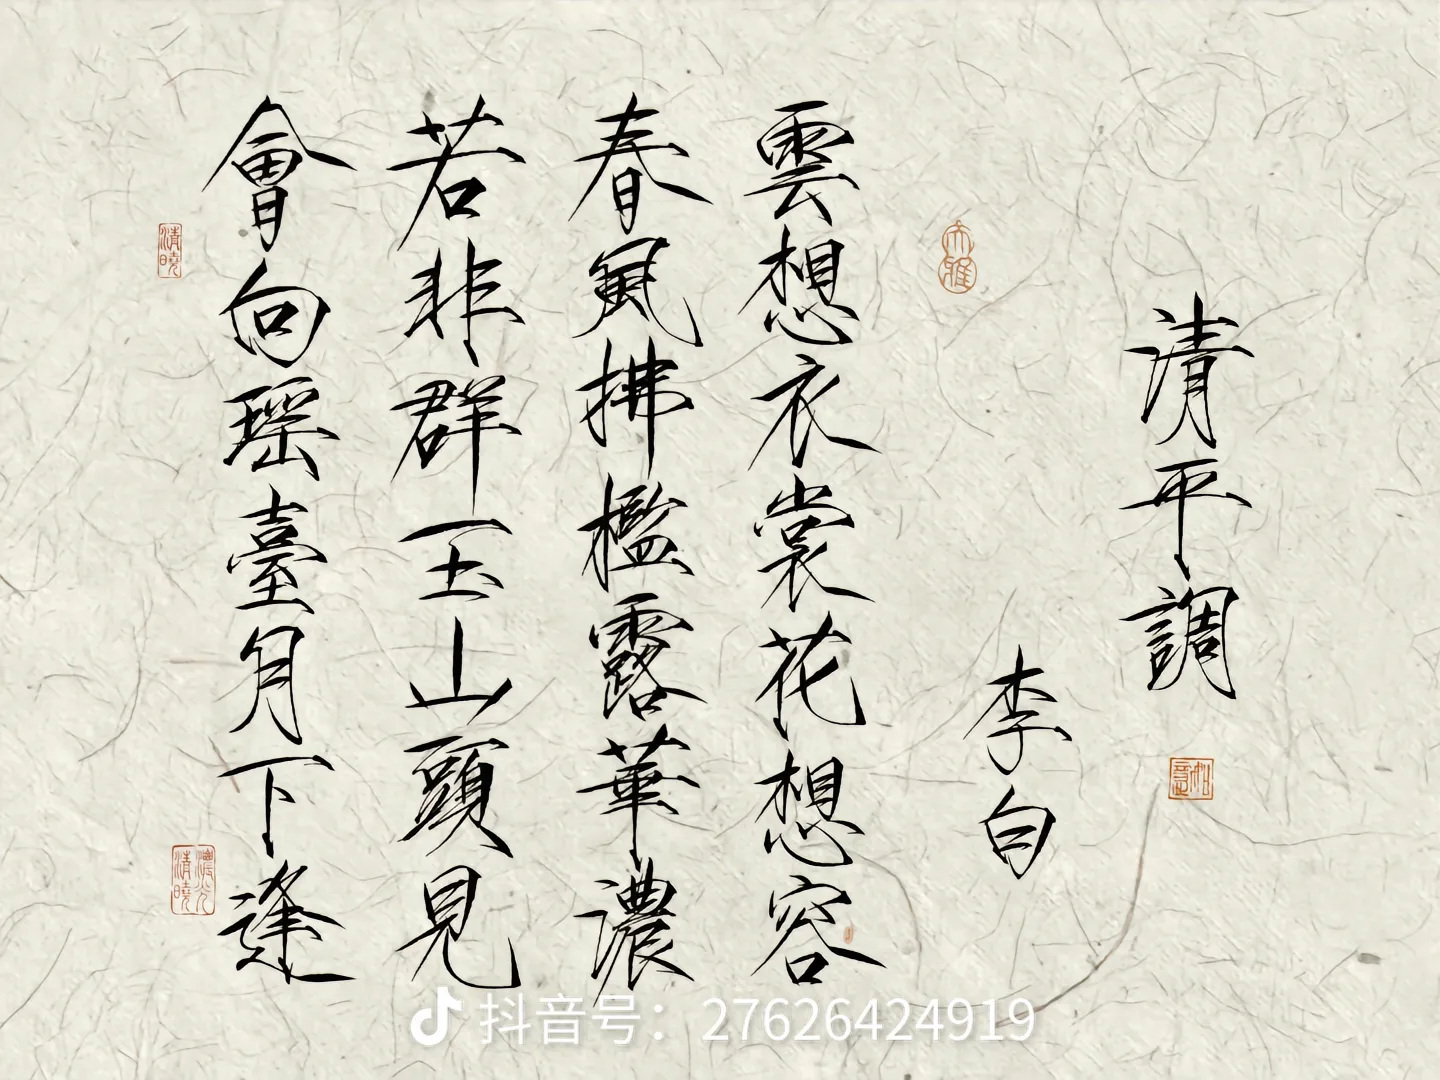 清平調
如意
李白
大雅
雲想衣裳花想容
春風拂檻露華濃
若非群玉山頭見
會向瑶臺月下逢
清曉
濃光清曉
抖音号：27626424919